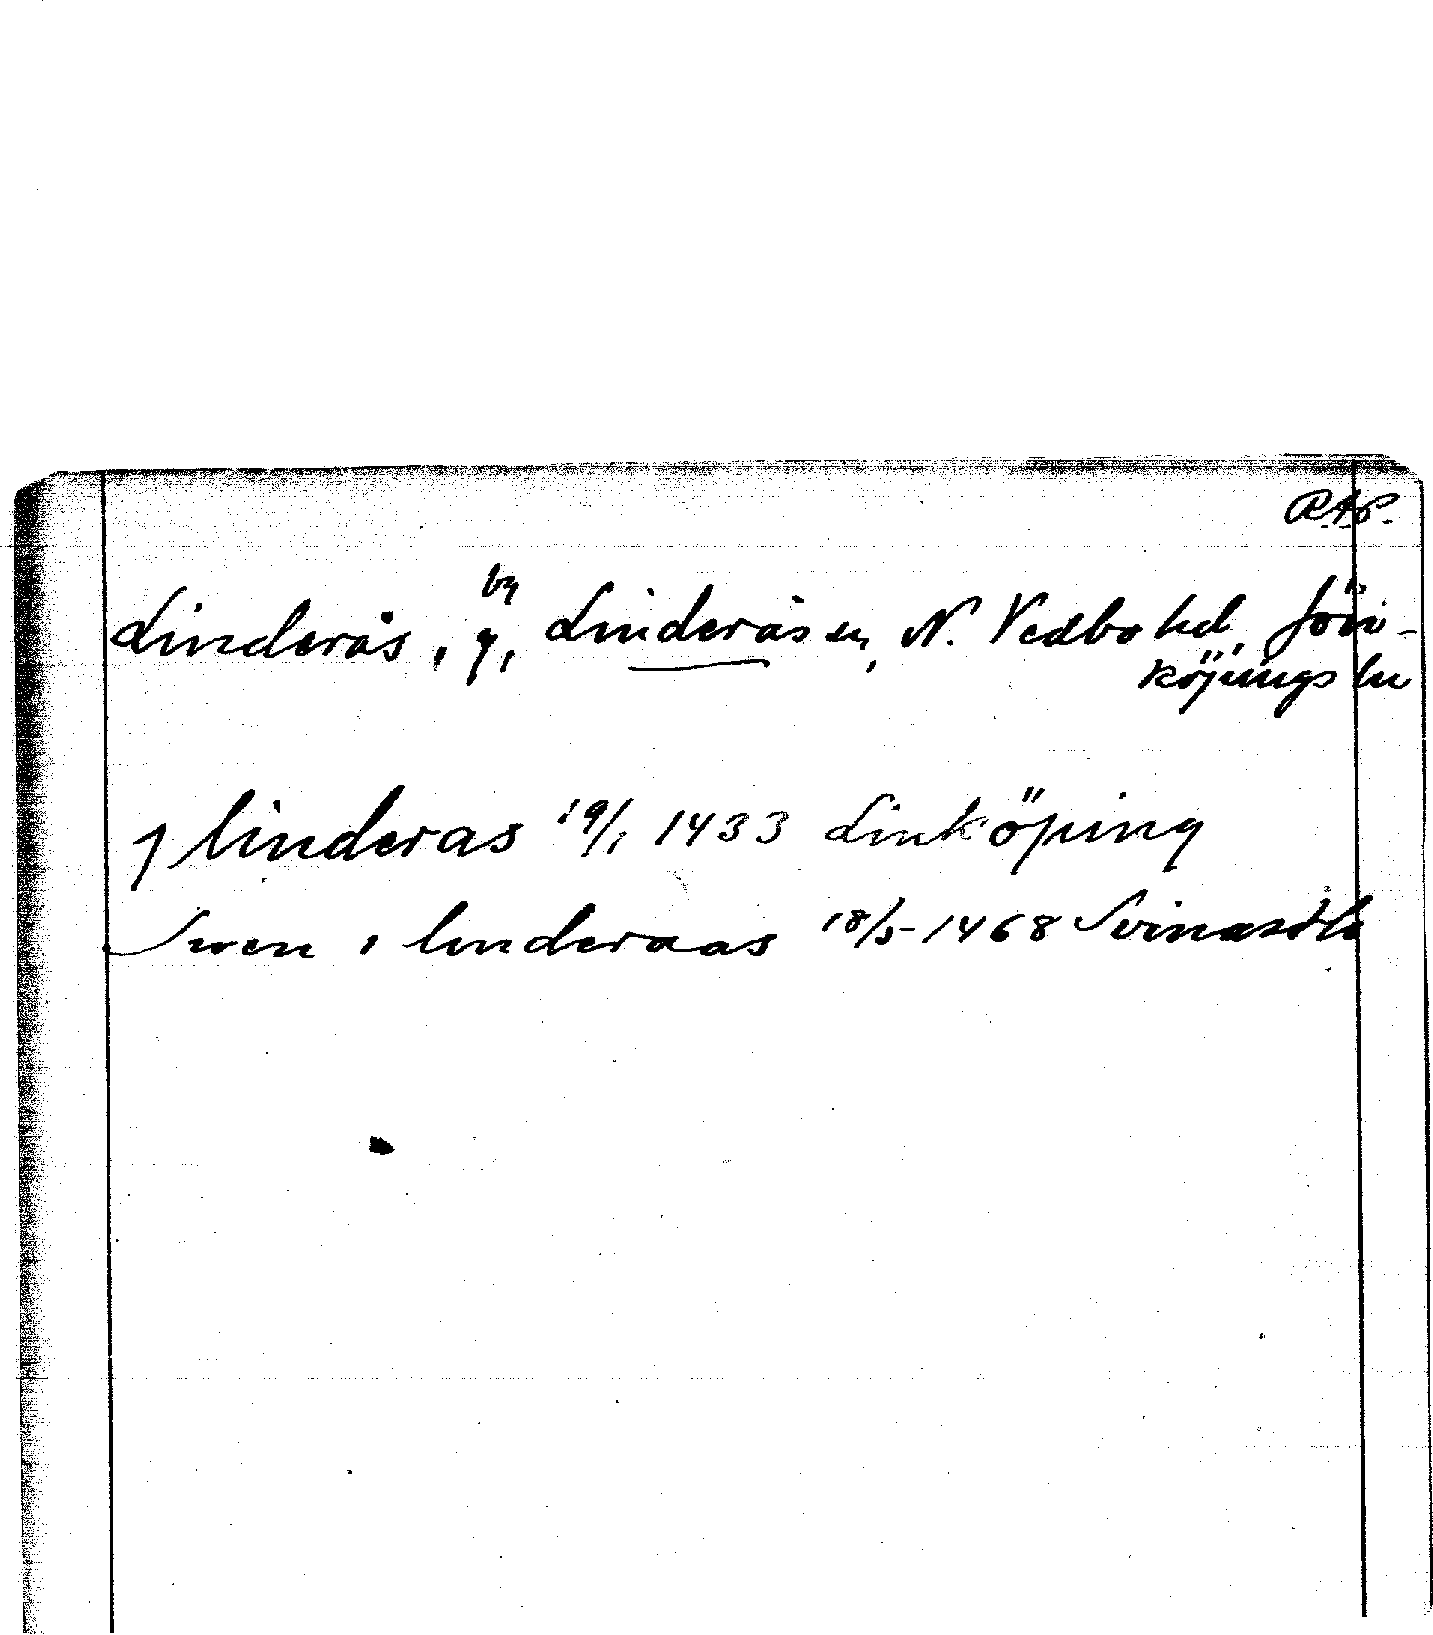 RAP.
by
Linderås, g, Linderås sn, N. Vedbo hd, Jön-
köpings län
j linderas 19/1 1433 Linköping
Swen i linderaas 18/5 1468